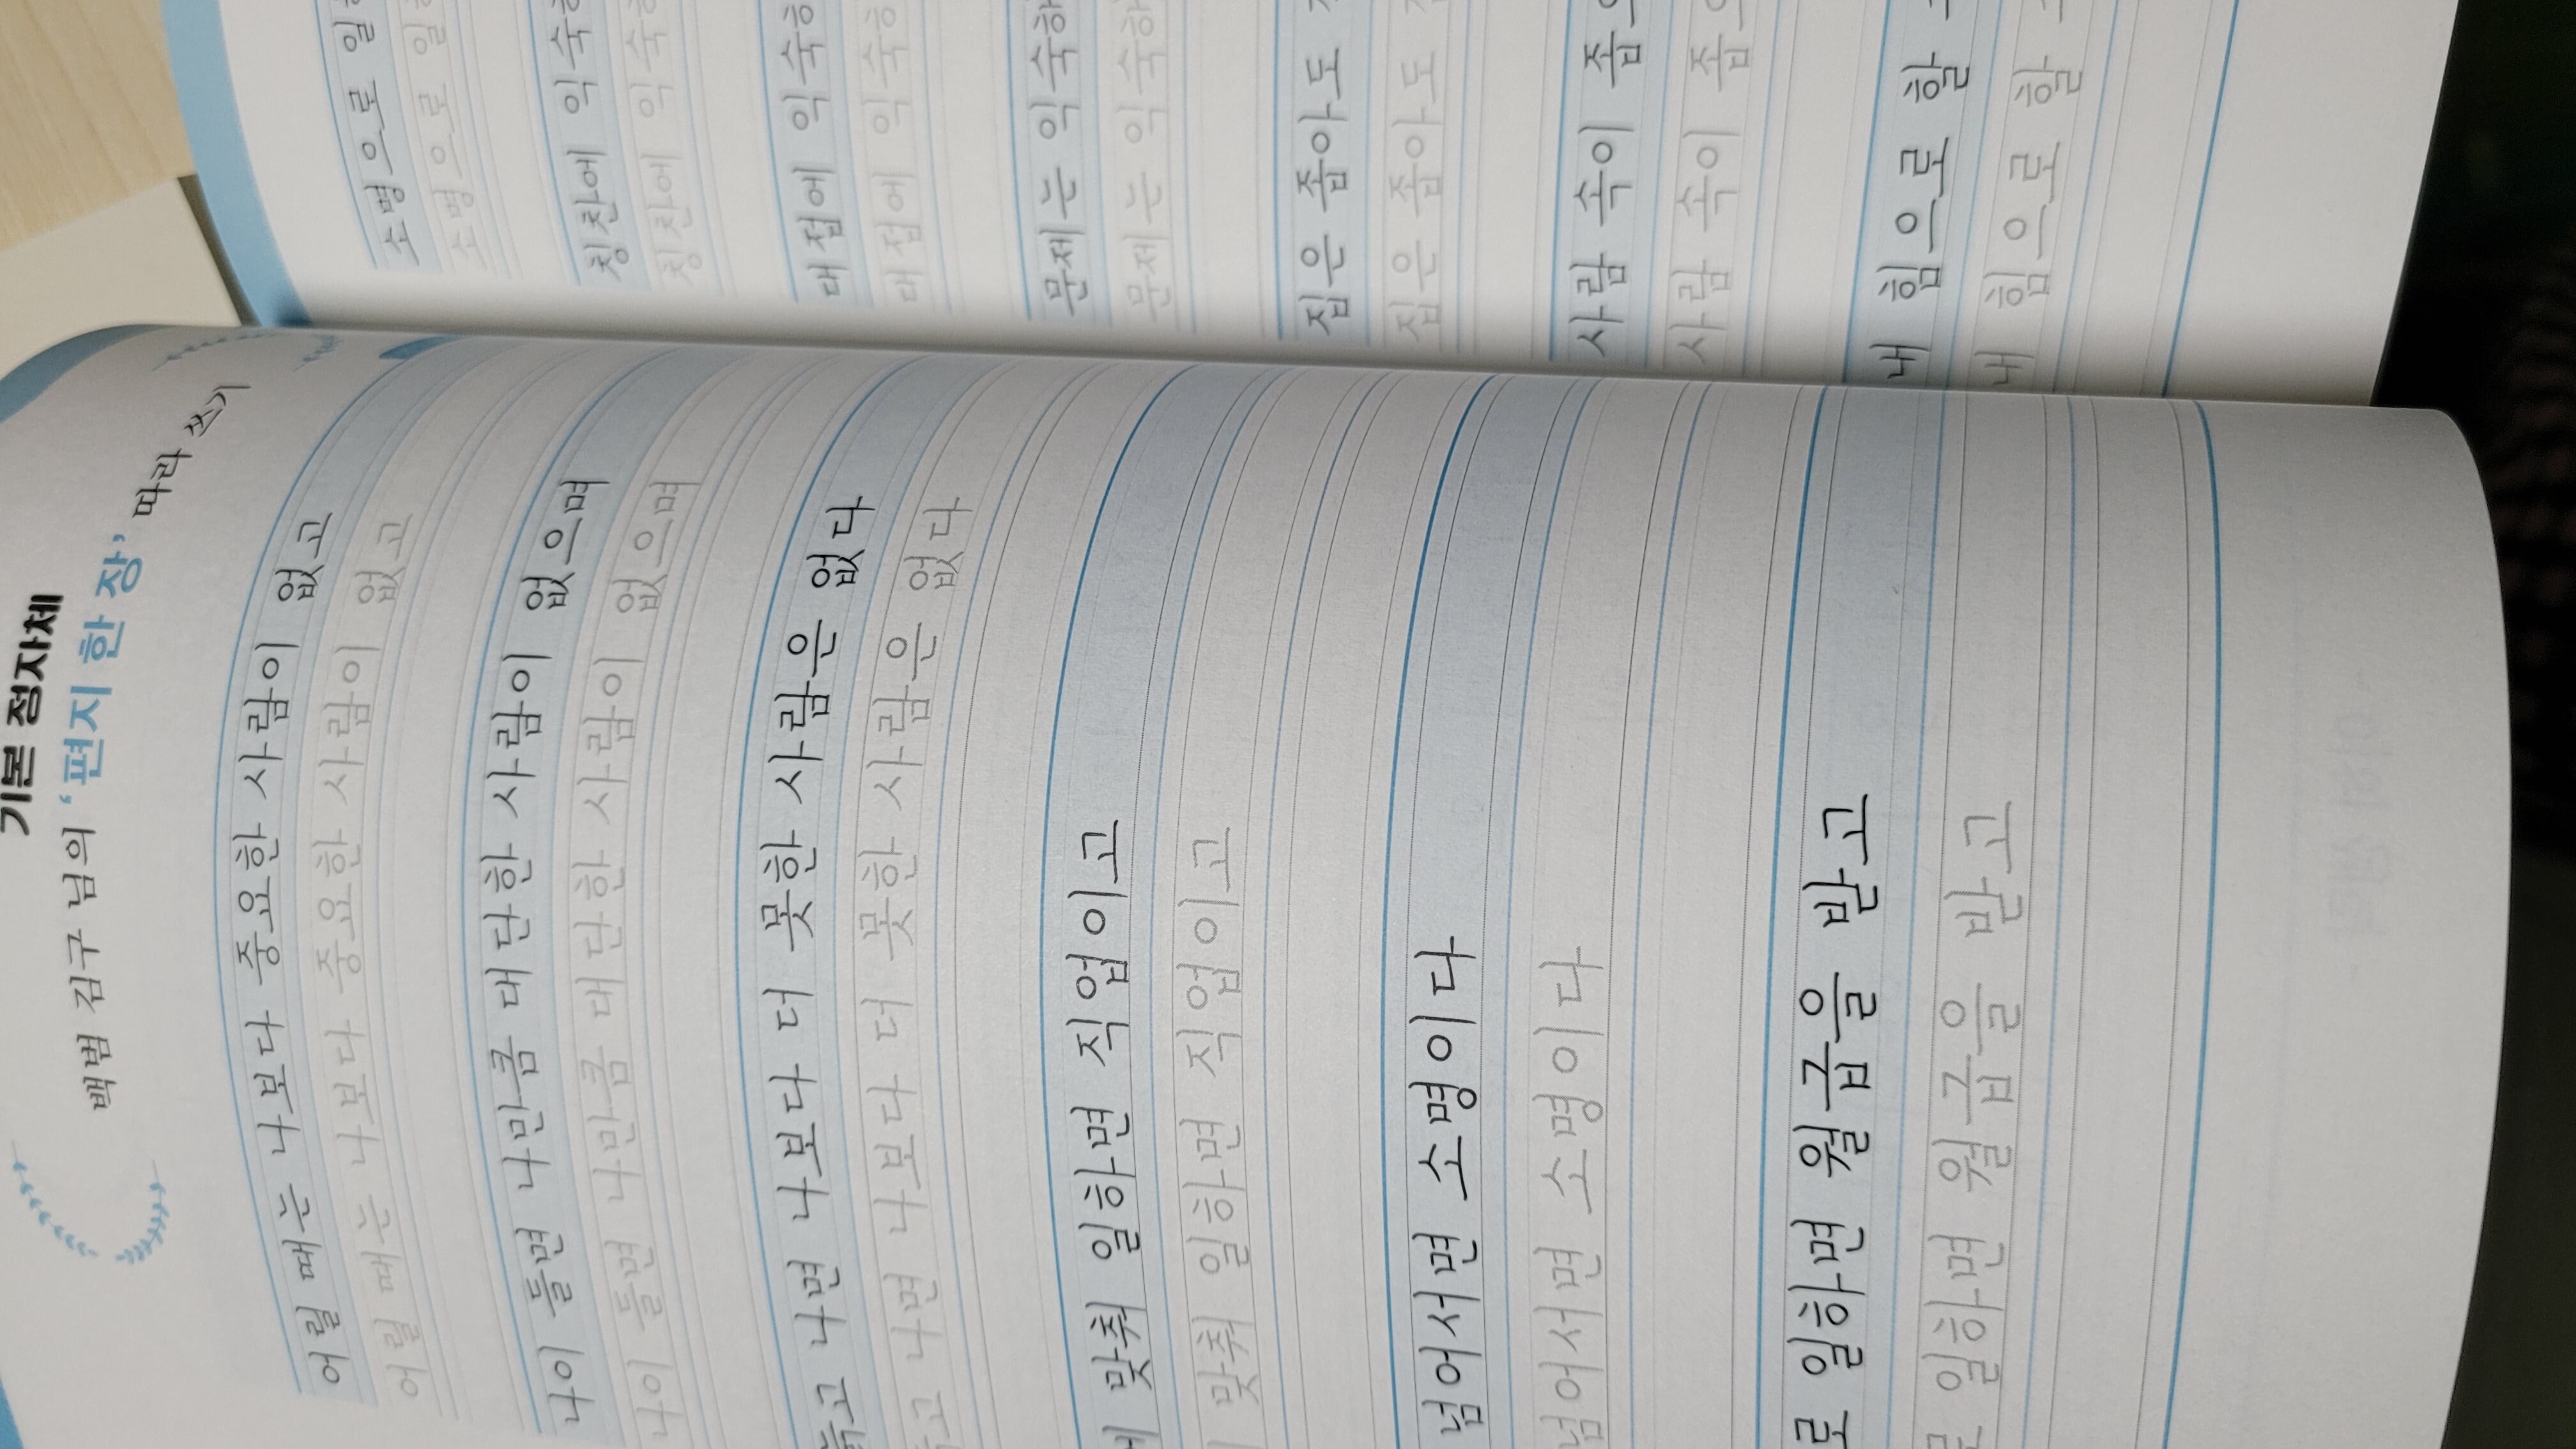 기본 정자체
백범 김구 님의 ‘편지 한 장’ 따라 쓰기
어릴 때는 나보다 중요한 사람이 없고
어릴 때는 나보다 중요한 사람이 없고
나이 들면 나만큼 대단한 사람이 없으며
나이 들면 나만큼 대단한 사람이 없으며
늙고 나면 나보다 더 못한 사람은 없다
고 나면 나보다 더 못한 사람은 없다
맞춰 일하면 직업이고
맞춰 일하면 직업이고
넘어서면 소명이다
넘어서면 소명이다
로 일하면 월급을 받고
로 일하면 월급을 받고
소명으로 일
소명으로 일
칭찬에 익숙
칭찬에 익숙
대접에 익숙
대접에 익숙
문제는 익숙하
문제는 익숙하
집은 좁아도
집은 좁아도
사람 속이 좁
사람 속이 좁
내 힘으로 할
내 힘으로 할